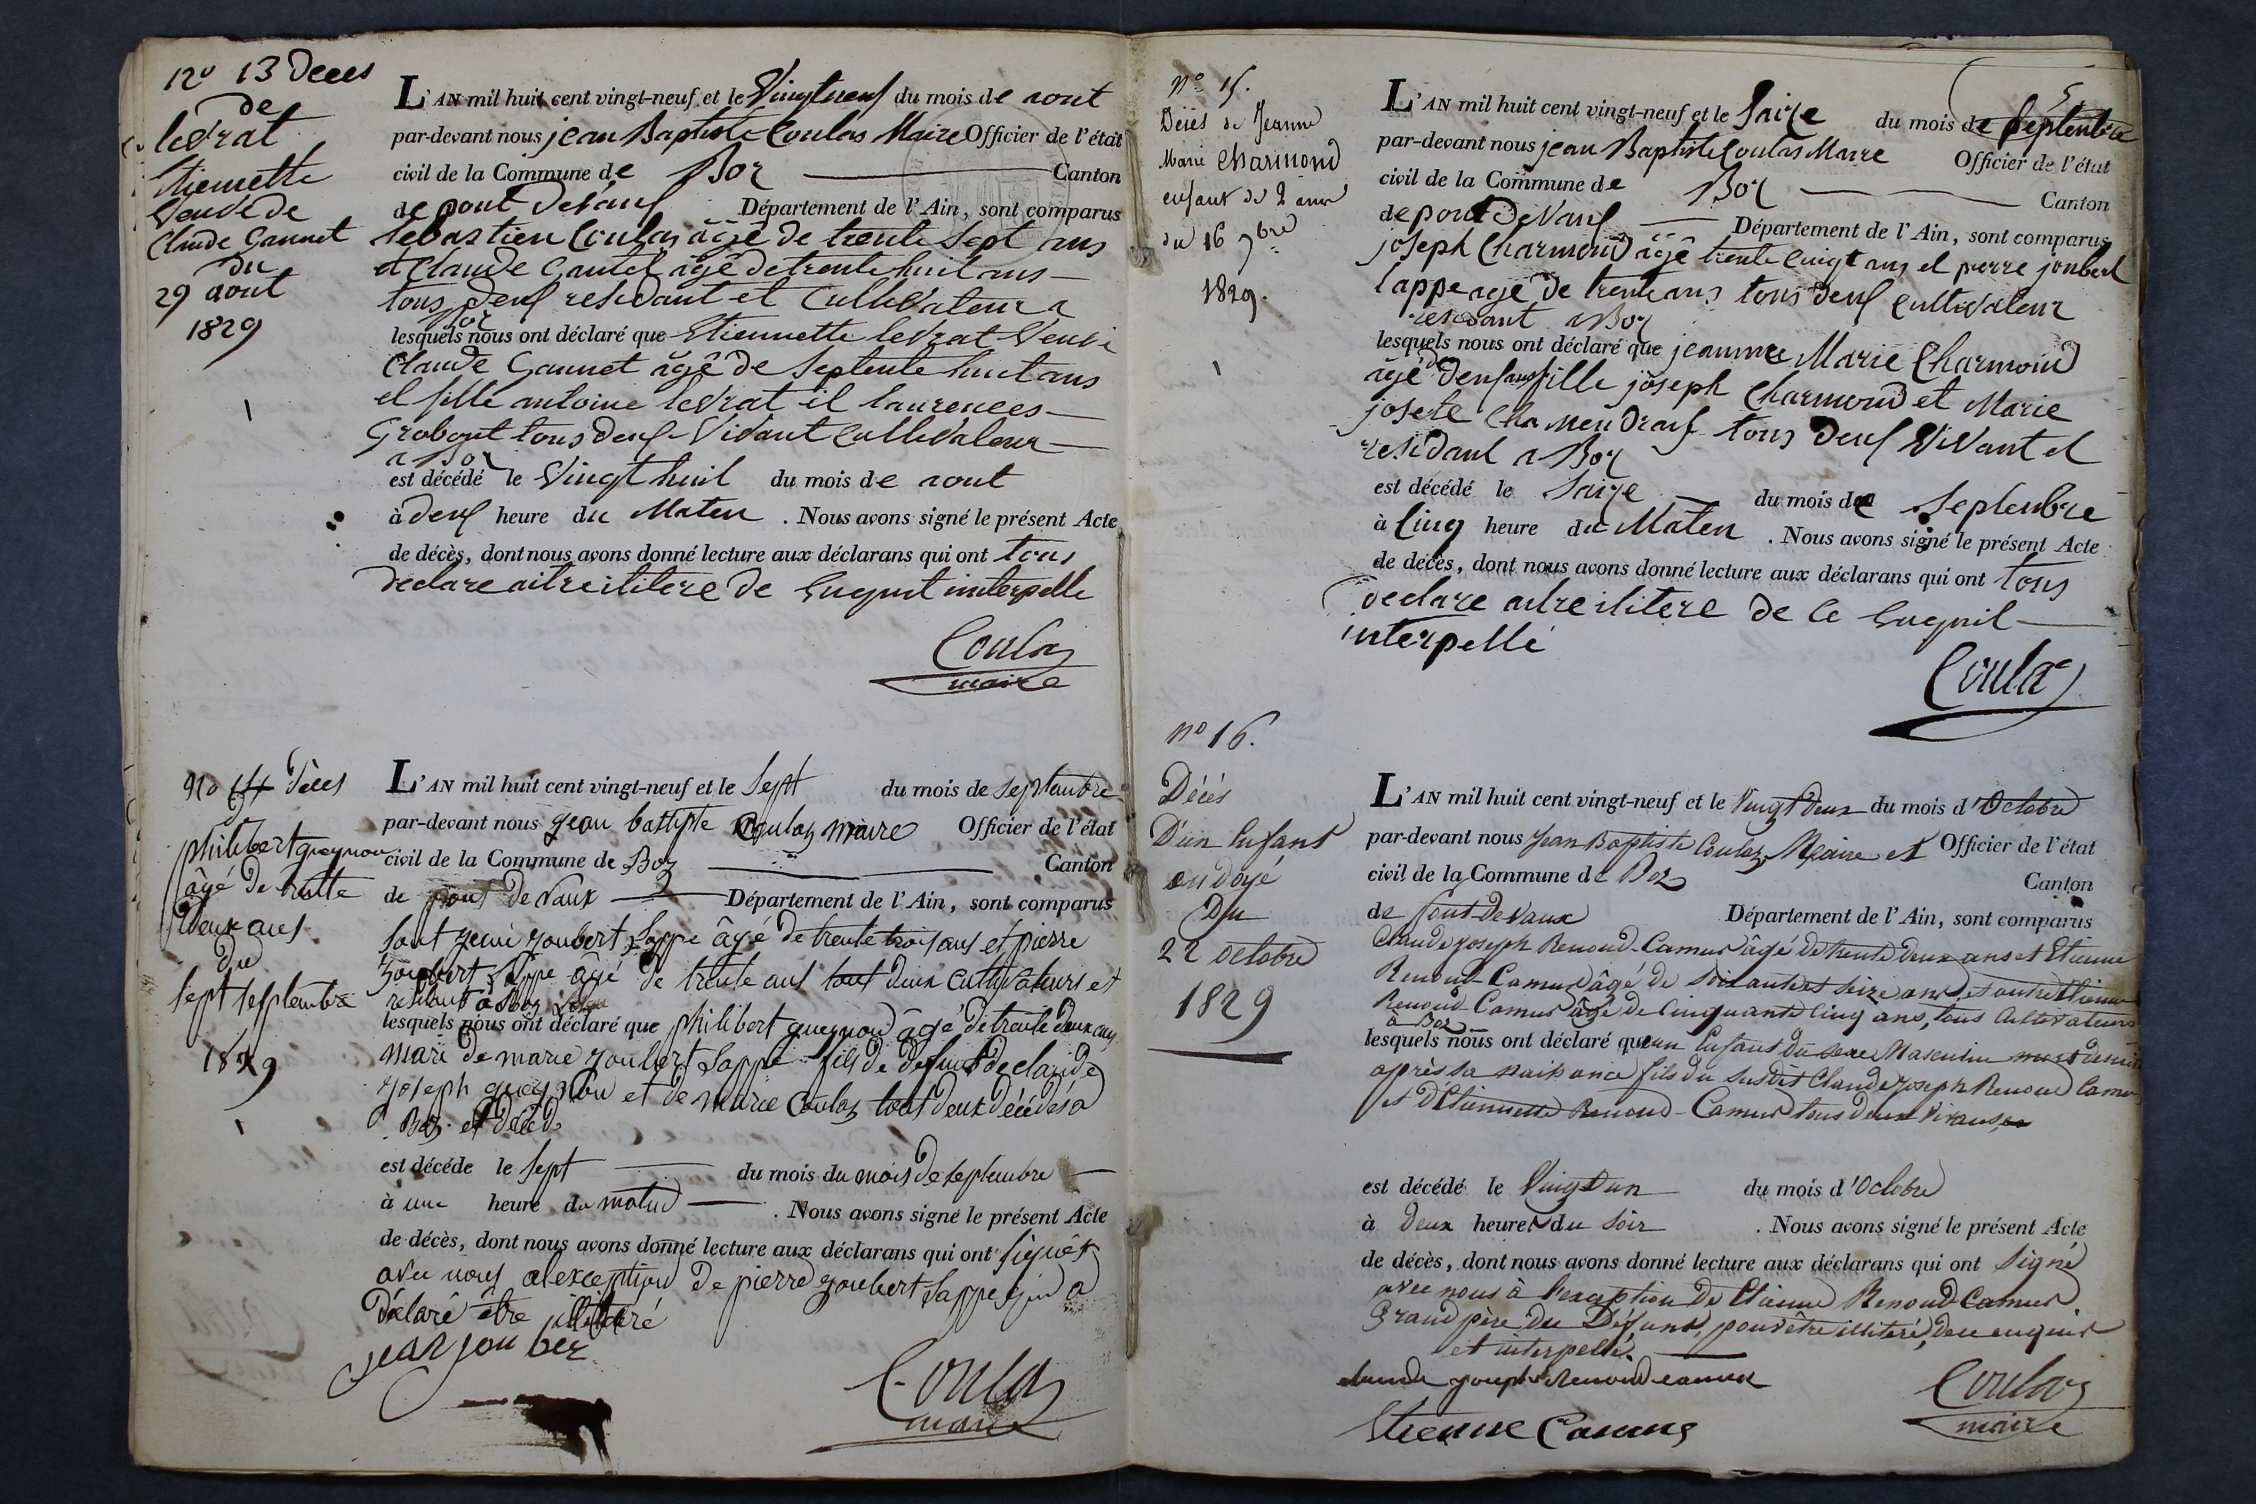 no 13 Deces
de
levrat
Etiennette
Veuve de
Claude Gaunet
du
29 aout
1829
1
L'AN mil huit cent vingt-neuf et le Vingt neuf du mois de aout
par-devant nous jean Baptiste Coulas Maire Officier de l'état
civil de la Commune de Boz Canton
de pont Devauf Département de l'Ain, sont comparus
Sebastien Coulas âgé de trente Sept ans
et Claude Gautet âgé de trente huit ans
tous deuf residant et Cultivateur a
Boz
lesquels nous ont déclaré que Etiennette levrat Veuve
Claude Gaunet âgé de Septente huit ans
et fille antoine levrat et laurences
Grobout tous deuf Vivant Cultivateur
a Boz
est décédé le Vingt huit du mois de aout
à deuf heure du Maten . Nous avons signé le présent Acte
de décès, dont nous avons donné lecture aux déclarans qui ont tous
declare aitre ilitere de Enquit interpelle
Coulas
maire
No 14 Déces
de
philibert gueynon
âgé de trente
deux ans
du
sept septembre
1829
1
L'AN mil huit cent vingt-neuf et le Septt du mois de septembre
par-devant nous gean battiste Coulas maire Officier de l'état
civil de la Commune de Boz Canton
de pont de Vaux Département de l'Ain, sont comparus
sont jean joubert Lappe âgé de trente trois ans et pierre
joubert Lappe âgé de trente ans tout deux cultivateurs et
residant à Boz
lesquels nous ont déclaré que philibert gueynon âgé de trente deux ans
mari de marie joubert Lappe fils de defunt de claude
joseph gueynon et de marie Coulas tout deux décédés à
Boz et décédé
est décéde le sept du mois du mois de septembre
à une heure du matin . Nous avons signé le présent Acte
de décès, dont nous avons donné lecture aux déclarans qui ont signés
avec nous alexception de pierre joubert Lappe qui a
déclaré être illitéré
jean jouber
Coulas
maire
no 15.
Décés de Jeanne
Marie Charmond
enfant de 2 ans
du 16 7bre
1829.
1
5
L'AN mil huit cent vingt-neuf et le Saize du mois de Septenbre
par-devant nous jean Baptiste Coulas Maire Officier de l'état
civil de la Commune de Boz Canton
de pont DeVauf Département de l'Ain, sont comparus
joseph Charmond âgé trente Cinqt ans et pierre joubert
lappe agé de trente ans tous deuf Cultivateur
residant a Boz
lesquels nous ont déclaré que jeannne Marie Charmoind
âgé deuf ans fille joseph Charmond et Marie
josete Chamendrauf tous deuf ViVant et
residant a Boz
est décédé le Saize du mois de Septenbre
à Cinq heure du Maten . Nous avons signé le présent Acte
de décès, dont nous avons donné lecture aux déclarans qui ont tous
declare aitre ilitere de Ce Enquit
interpellé
Coulas
no 16.
Décés
D'un Enfant
ondoyé
Du
22 octobre
1829
L'AN mil huit cent vingt-neuf et le Vingt deux du mois d'Octobre
par-devant nous Jean Baptiste Coulas, Maire et Officier de l'état
civil de la Commune de Boz Canton
de Pont-de-Vaux Département de l'Ain, sont comparus
Claude Joseph Renoud-Camus âgé de trente deux ans et Etienne
Renoud-Camus âgé de soixante et seize ans, et autre Etienne
Renoud-Camus âgé de cinquante cinq ans, tous Cultivateurs
à Boz
lesquels nous ont déclaré qu'un Enfant du sexe Masculin
après sa naisance fils du susdit Claude Joseph Renoud Camus
et d'Etiennette Renoud-Camus tous deux Vivans,
est décédé le Vingt un du mois d'Octobre
à deux heures du soir . Nous avons signé le présent Acte
de décès, dont nous avons donné lecture aux déclarans qui ont signé
avec nous à l'exception de Etienne Renoud Camus
Grand père du Défunt, pour être illitéré, de ce enquis
et interpellé.
claude joseph Renoud camus
Etienne Camus
Coulas
maire